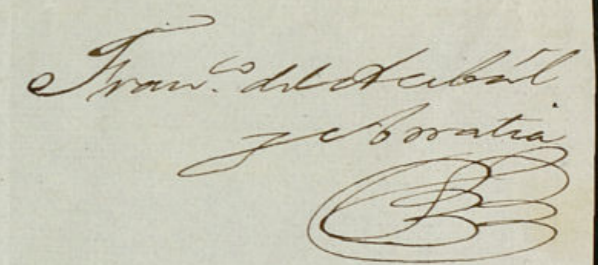 Fran.co del Acebál
y Arratia